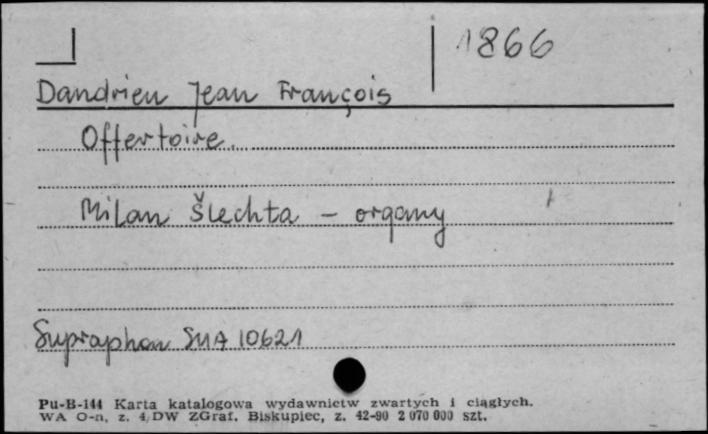 1866
Dandrieu Jean François
Offertoire.
Milan Šlechta – organy
Supraphon SUA 10621
Pu-B-144 Karta katalogowa wydawnictw zwartych i ciągłych.
WA O-n, z. 4 DW ZGraf. Biskupiec, z. 42-90 2 070 000 szt.